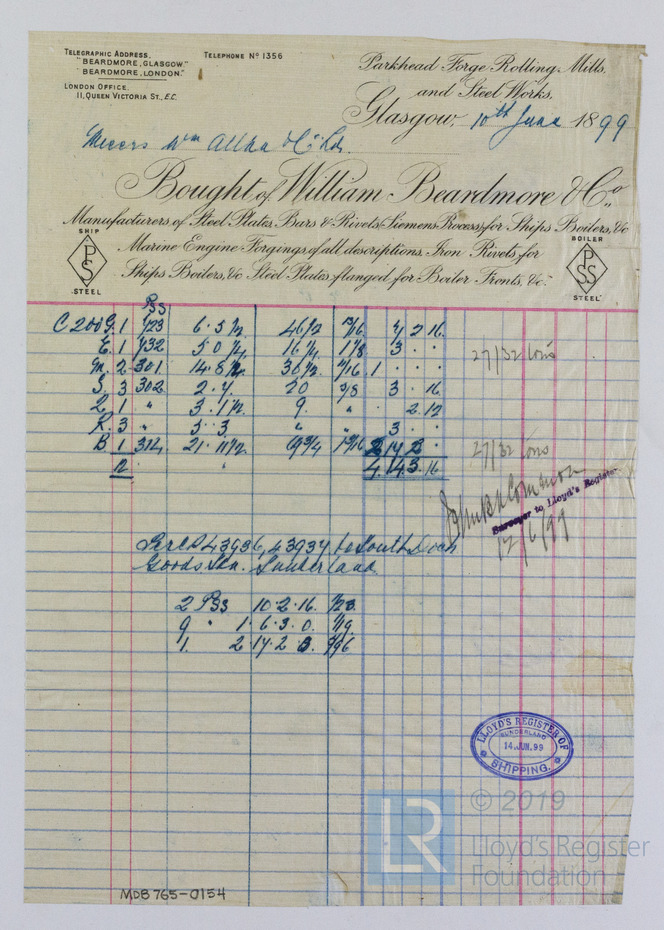 TELEGRAPHIC ADDRESS, TELEPHONE Nº 1356
"BEARDMORE, GLASGOW."
"BEARDMORE, LONDON."
LONDON OFFICE,
11, QUEEN VICTORIA ST., E.C.
Parkhead Forge Rolling Mills,
and Steel Works,
Glasgow, 10th June 1899
Messrs Wm Allan & Co Ld.
Bought of William Beardmore & Co.,
Manufacturers of Steel Plates, Bars & Rivets (Siemens Process) for Ships Boilers, &c
Marine Engine Forgings of all descriptions, Iron Rivets for
Ships Boilers, &c Steel Plates flanged for Boiler Fronts, &c.
SHIP
PSS
STEEL
BOILER
PSS
STEEL
PSS
C 200 G. 1 1/23 6.5 1/2 46 1/2 2 16
E. 1 1/32 5 0 1/4 16 1/4 1 1/8 3 . .
M. 2 301 14.8 1/2 1 . . .
S. 3 302 2.4 20 5/8 3 . 16
1 " 3.1 1/2 9 " 2.12
R. 3 " 5.3 " " 3 . .
B 1 312 21.11 1/2 69 3/4 2 14 2
12 4.14.3.16
27/32 tons
27/32 tons
Surveyor to Lloyd's Register
12/6/99
43936, 43937 to South Dock
Goods Stn. Sunderland
2 PSS 10.2.16. 1/23
9 " 1.6.3.0. 1/19
1. 2.14.2.8.
LLOYD'S REGISTER OF
SUNDERLAND
14.JUN.99
SHIPPING.
LR
© 2019
Lloyd's Register
Foundation
MDB765-0154